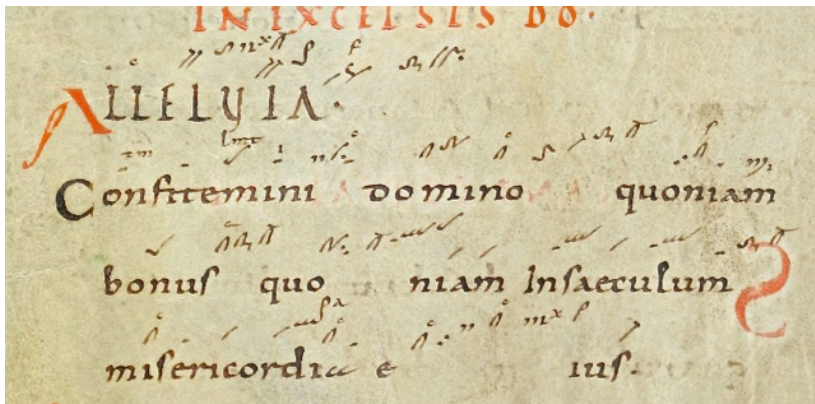 IN EXCELSIS DO.
ALLELUIA.
Confitemini domino quoniam
bonus quo niam Insaeculum
misericordia e ius.
S